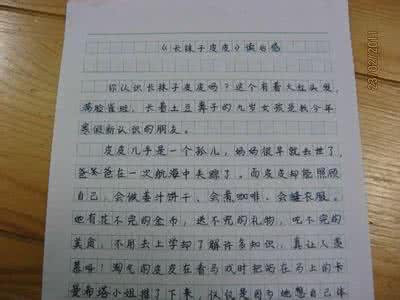 《长袜子皮皮》读后感
你认识长袜子皮皮吗？这个有着火红头发，
满脸雀斑，长着土豆鼻子的九岁女孩是我今年
寒假新认识的朋友。
皮皮几乎是一个孤儿，妈妈很早就去世了，
爸爸在一次航海中失踪了。而皮皮却能照顾
自己，会做姜汁饼干、会煮咖啡、会缝衣服。
她有花不完的金币，送不完的礼物，吃不完的
美食，不用去上学却了解许多知识，真让人羡
慕呀！淘气的皮皮在看马戏时把站在马上的卡
曼希塔小姐推了下来，仅仅是因为她想自己体
23/02/2011